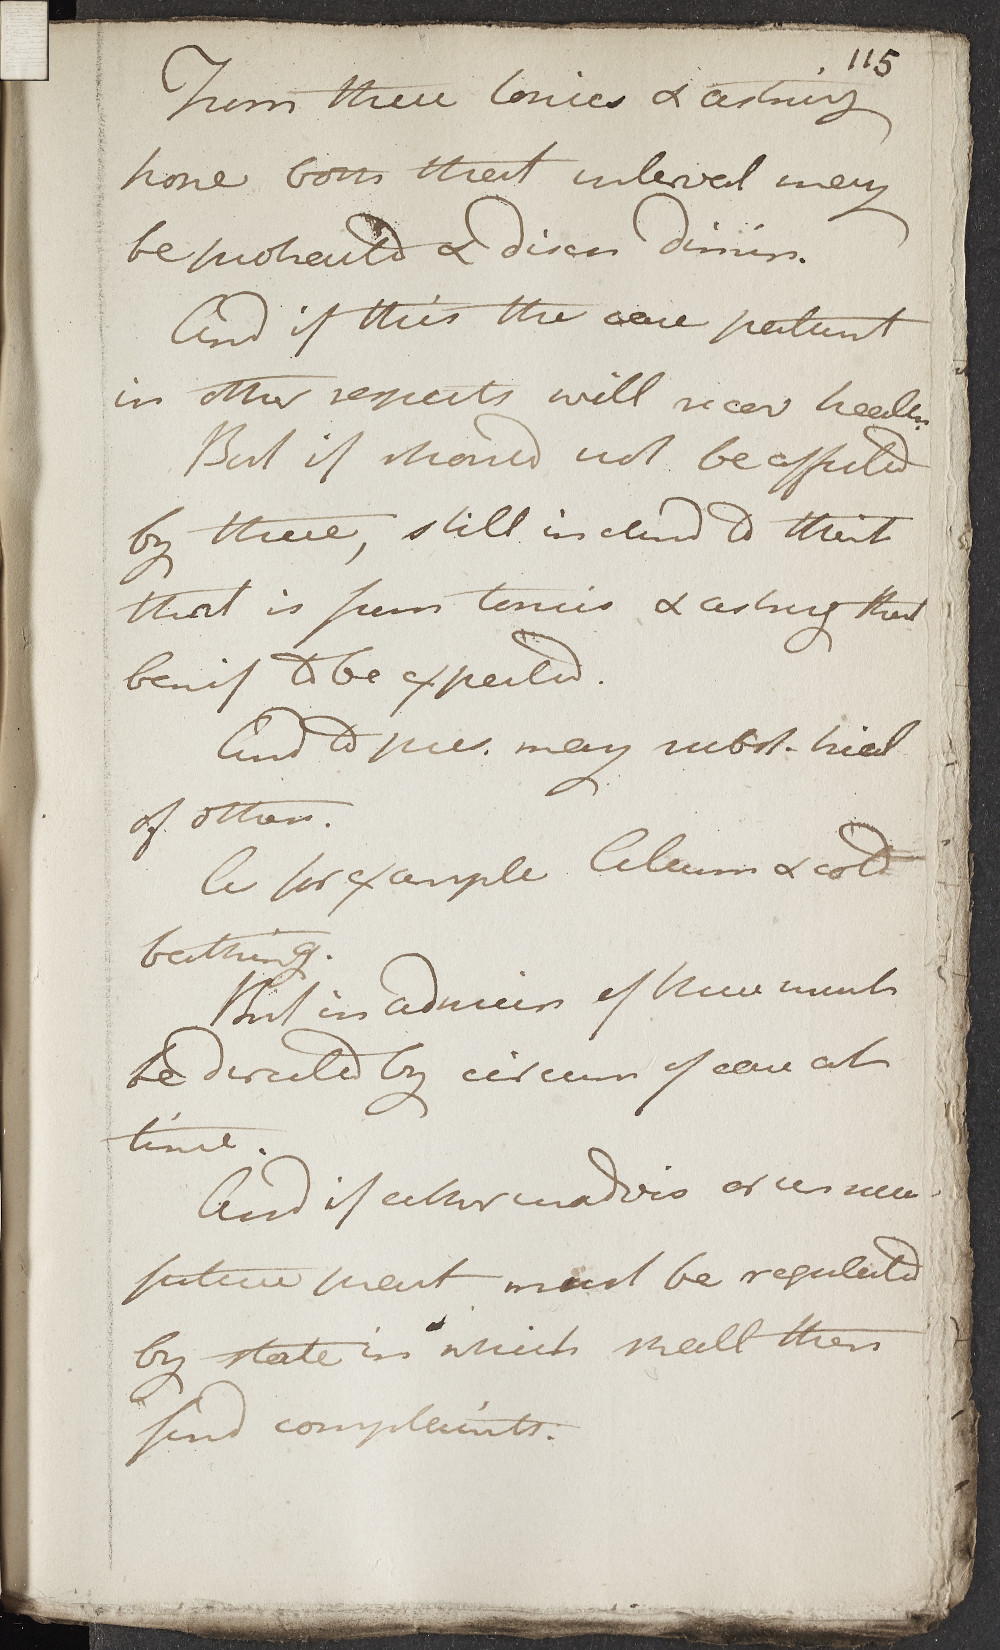 115
From these tonics & astring
hope both that interval may
be protracted & diseas dimin.
And if this the case patient
in other respects will recov health.
But if should not be affected
by these, still inclined to think
that is from tonics & astring that
benif to be expected.
And to pres. may subst. trial
of others.
As for example Alum & cold
bathing.
But in admin of these must
be directed by circum of case at
time.
And if either or unsuc
future treat must be regulated
by state in which shall then
find complaints.